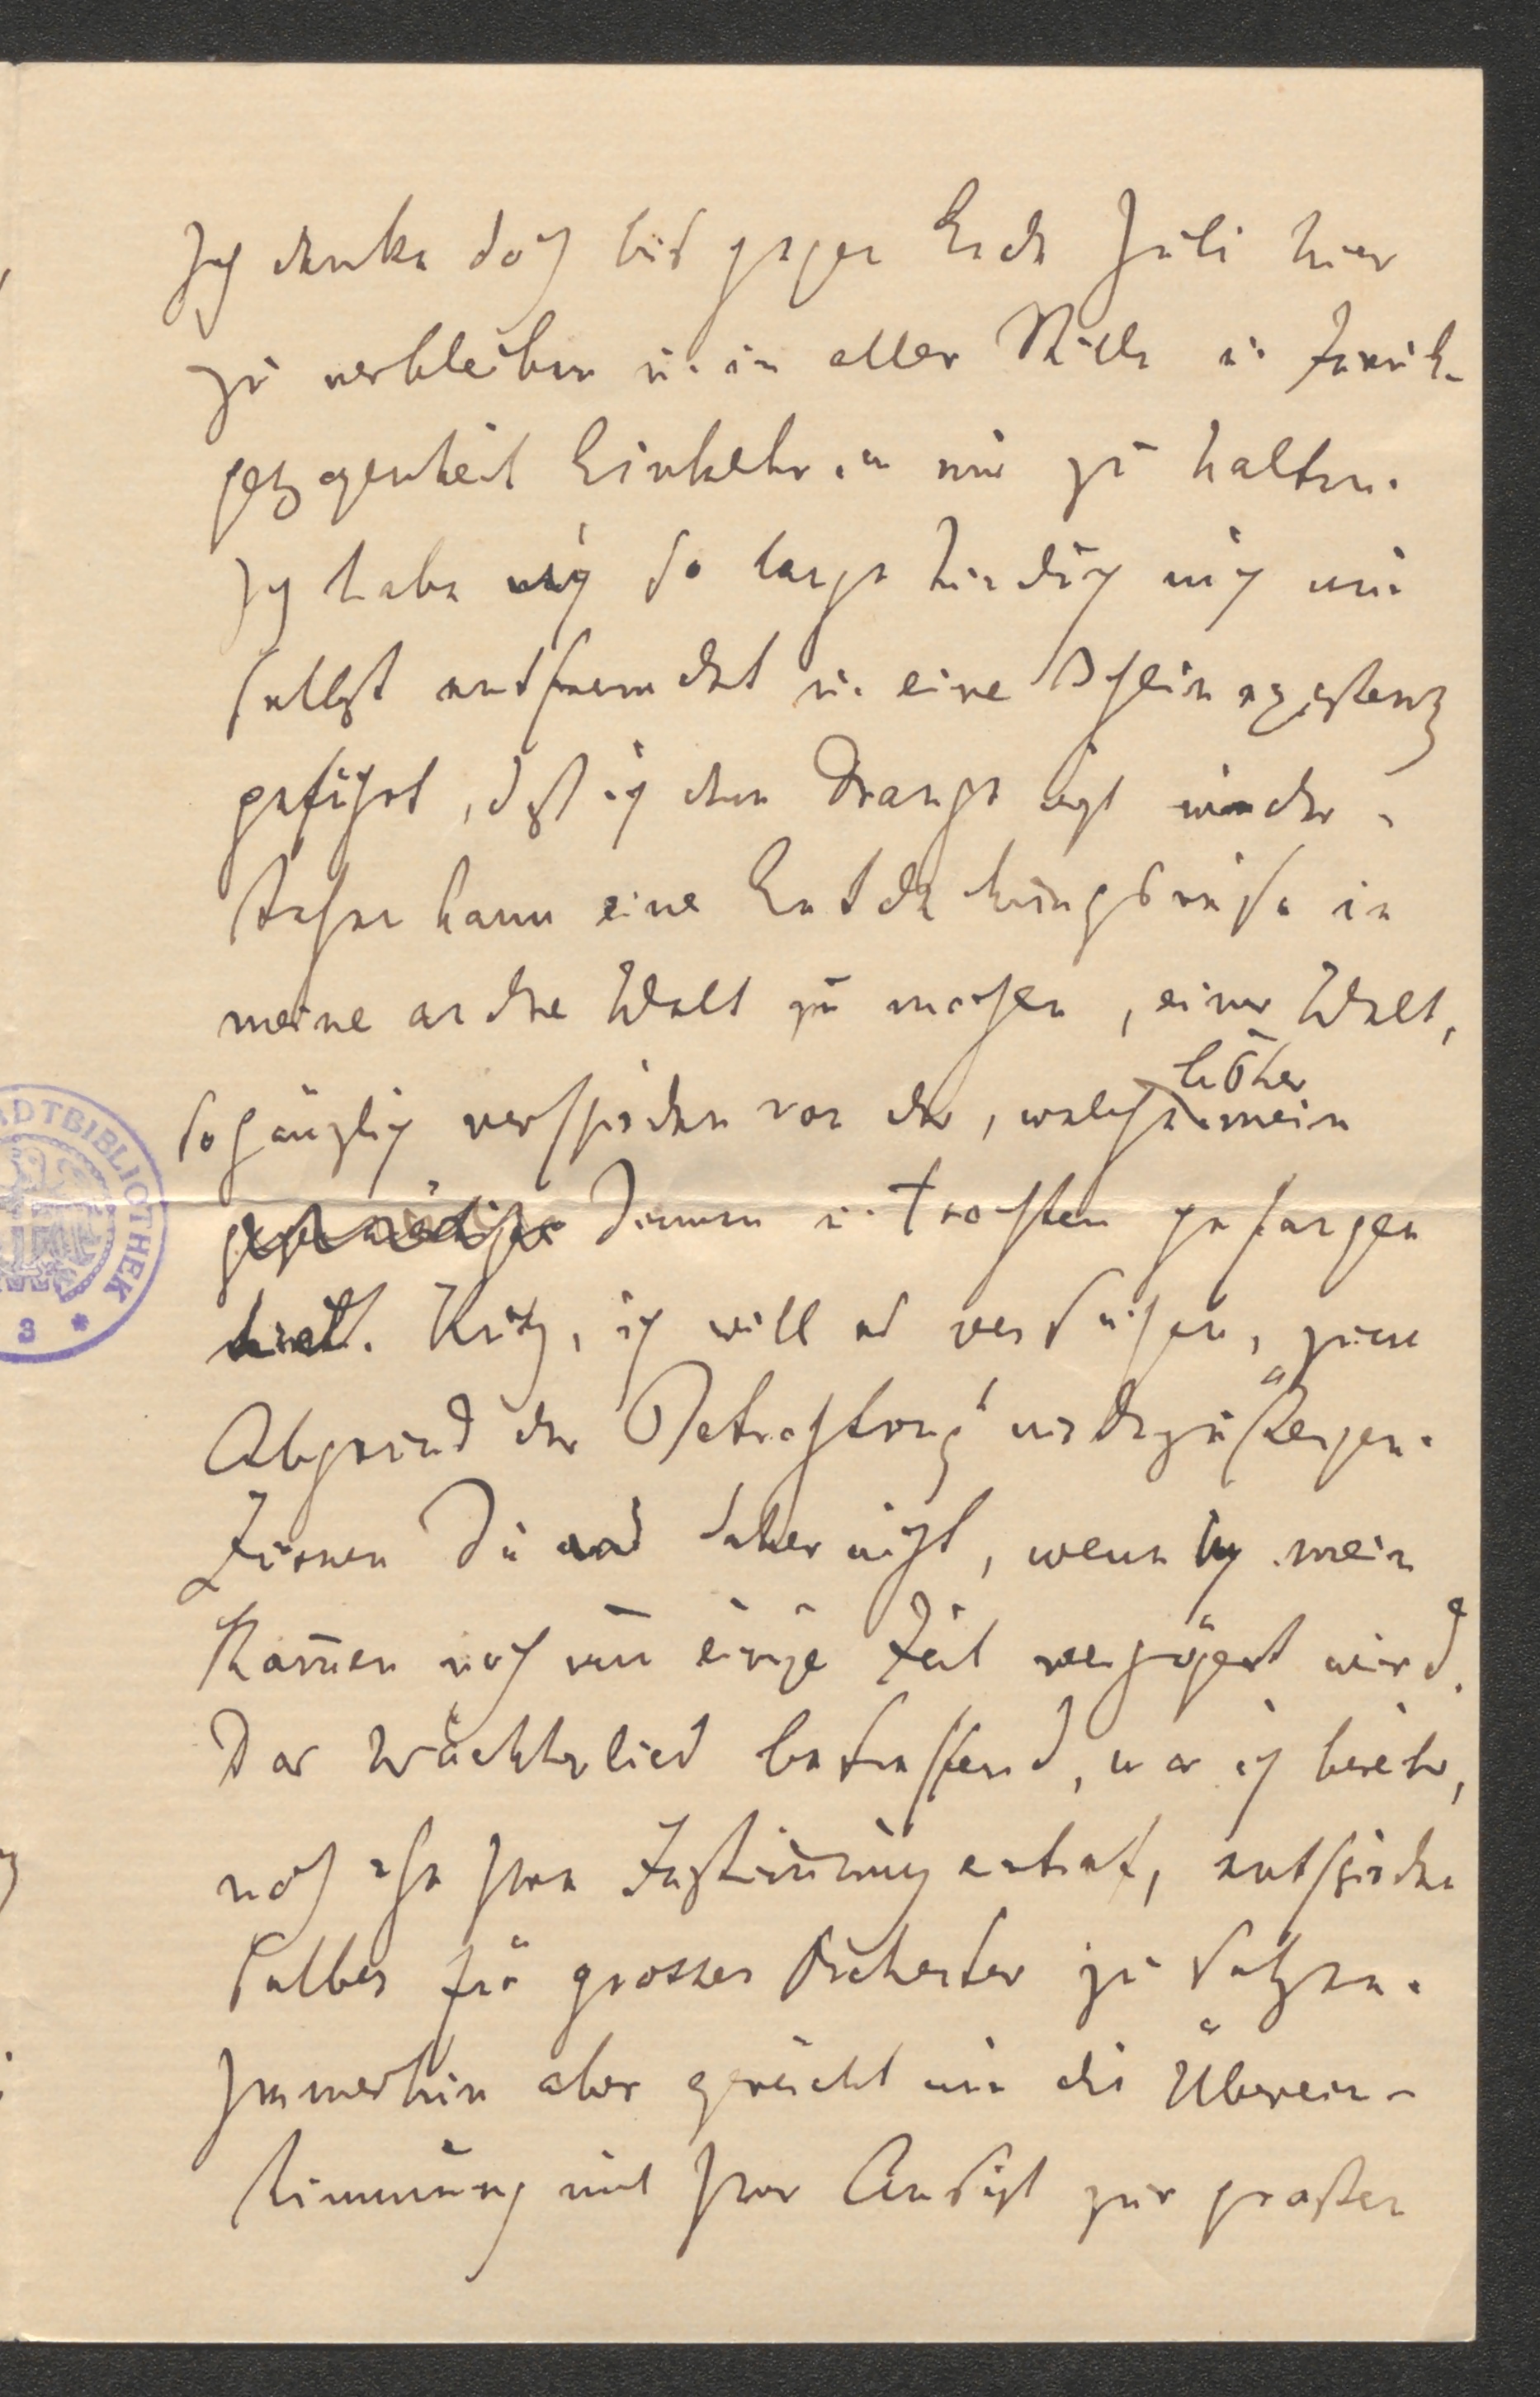 Ich denke doch bis gegen Ende Juli hier
zu verbleiben u. in aller Stille u. Zurück-
gezogenheit Einkehr in mir zu halten.
Ich habe mich so lange hindurch mich mir
selbst entfremdet u. eine Scheinexistenz
geführt, daß ich dem Drange nicht wieder-
stehen kann eine Entdeckungsreise in
meine andre Welt zu machen, einer Welt,
so gänzlich verschieden von der, welche bisher mein
Sinnen u. Trachten gefangen
hielt. Kurz, ich will es versuchen, zum
Abgrund der Betrachtung niederzusteigen.
Zürnen Sie daher nicht, wenn mein
Kommen noch um einige Zeit verzögert wird.
Das Wächterlied betreffend, war ich bereits,
noch ehe Ihre Zustimmung eintraf, entschieden
selbes für grosses Orchester zu setzen.
Immerhin aber gereicht mir die Überein-
stimmung mit Ihrer Ansicht zur großen
STADTBIBLIOTHEK
3 *